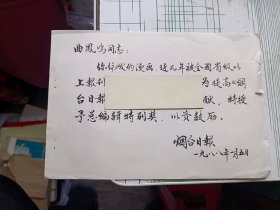 曲凤鸣同志:
你作的漫画,近几年被全国省级以
上报刊 为提高《烟
台日报 献,特授
予总编辑特别奖,以资鼓励。
烟台日报
一九八八年一月五日